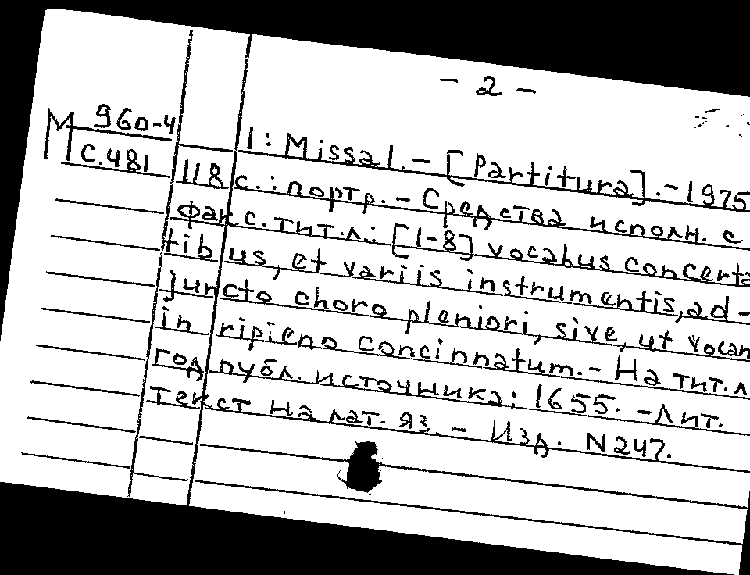 - 2 -
M 960-4
C.481
1: Missa I. - [Partitura]. - 1975
118 с.: портр. - Средства исполн. с
факс. тит. л.: [1-8] vocabus concerta
tibus, et variis instrumentis, ad-
juncto choro pleniori, sive, ut vocan
in ripieno concinnatum. - На тит. л
год публ. источника: 1655. - Лит.
текст на лат. яз. - Изд. N 247.